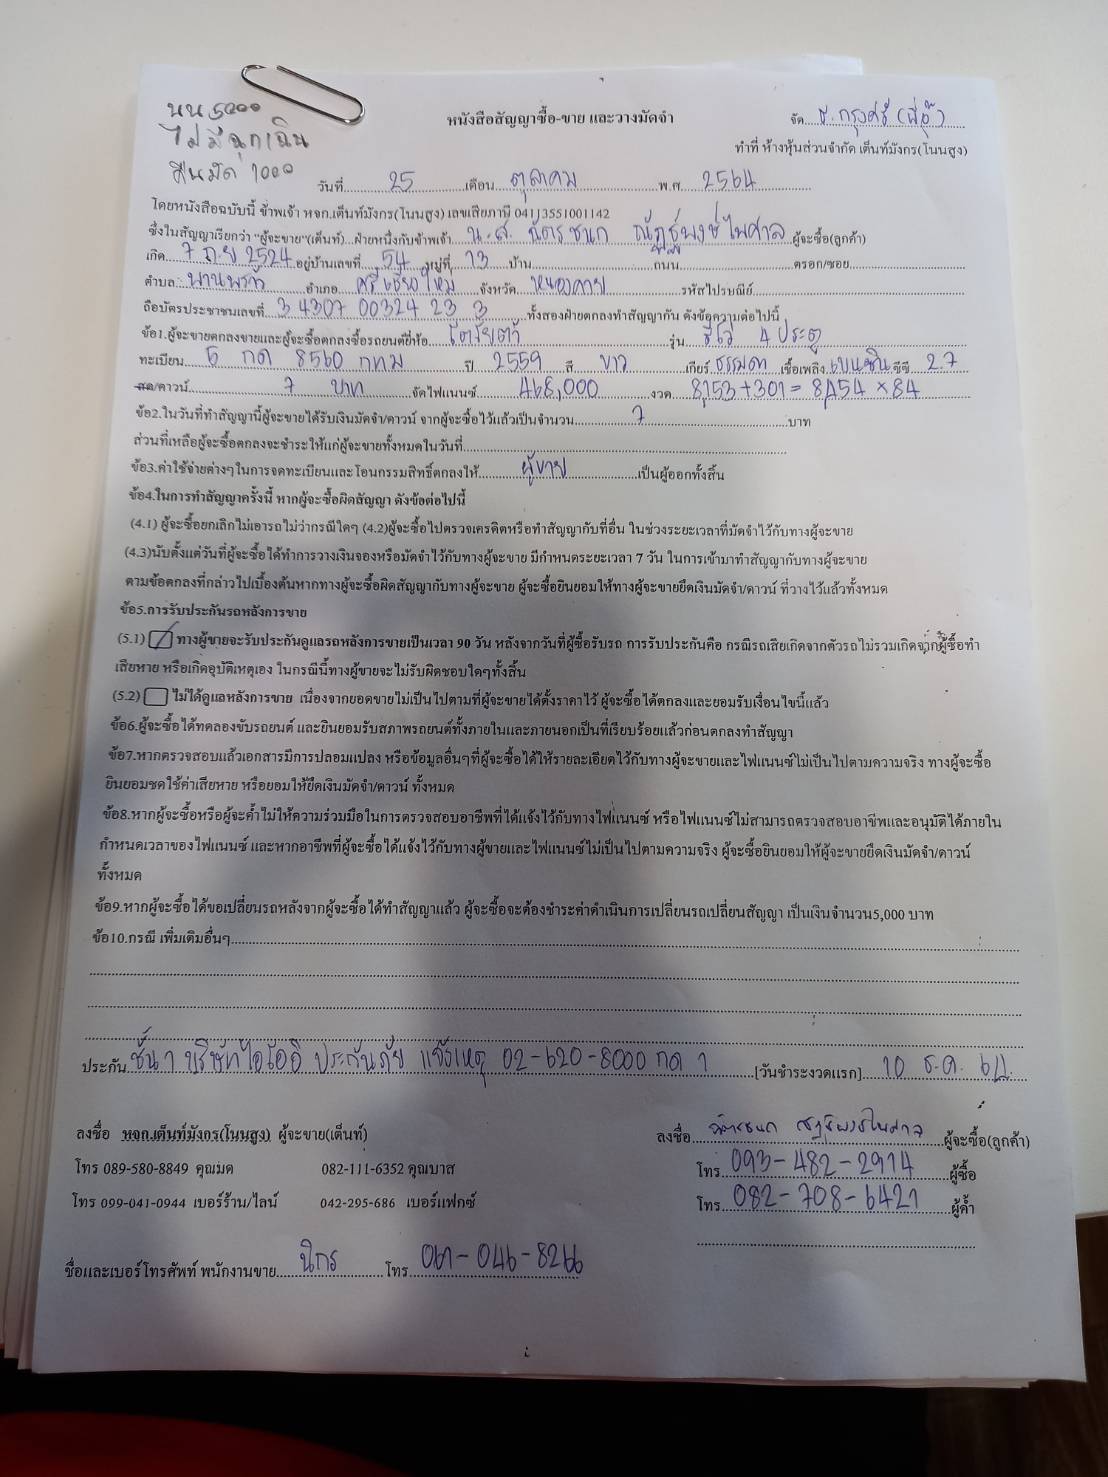 นน 5000
ไม่มีฉุกเฉิน
คืนมัด 1000
หนังสือสัญญาซื้อ-ขาย และวางมัดจำ
จัด ธ.กรุงศรี (พี่อุ๊)
ทำที่ ห้างหุ้นส่วนจำกัด เต็นท์มังกร(โนนสูง)
วันที่ 25 เดือน ตุลาคม พ.ศ. 2564
โดยหนังสือฉบับนี้ ข้าพเจ้า หจก.เต็นท์มังกร(โนนสูง) เลขเสียภาษี 04113551001142
ซึ่งในสัญญาเรียกว่า "ผู้จะขาย"(เต็นท์)...ฝ่ายหนึ่งกับข้าพเจ้า น.ส. ฉัตรชนก ณัฏฐ์พงษ์ไพศาล ผู้จะซื้อ(ลูกค้า)
เกิด 7 ก.ย 2524 อยู่บ้านเลขที่ 54 หมู่ที่ 13 บ้าน ถนน ตรอก/ซอย
ตำบล พานพร้าว อำเภอ ศรีเชียงใหม่ จังหวัด หนองคาย รหัสไปรษณีย์
ถือบัตรประชาชนเลขที่ 3 4307 00324 23 3 ทั้งสองฝ่ายตกลงทำสัญญากัน ดังข้อความต่อไปนี้
ข้อ1.ผู้จะขายตกลงขายและผู้จะซื้อตกลงซื้อรถยนต์ยี่ห้อ โตโยต้า รุ่น รีโว่ 4 ประตู
ทะเบียน 6 กด 8560 กทม ปี 2559 สี ขาว เกียร์ ธรรมดา เชื้อเพลิง เบนซิน ซีซี 2.7
สด/ดาวน์ 7 บาท จัดไฟแนนซ์ 468,000 งวด 8,153+301 = 8,454 × 84
ข้อ2.ในวันที่ทำสัญญานี้ผู้จะขายได้รับเงินมัดจำ/ดาวน์ จากผู้จะซื้อไว้แล้วเป็นจำนวน 7 บาท
ส่วนที่เหลือผู้จะซื้อตกลงจะชำระให้แก่ผู้จะขายทั้งหมดในวันที่
ข้อ3.ค่าใช้จ่ายต่างๆในการจดทะเบียนและโอนกรรมสิทธิ์ตกลงให้ ผู้ขาย เป็นผู้ออกทั้งสิ้น
ข้อ4.ในการทำสัญญาครั้งนี้ หากผู้จะซื้อผิดสัญญา ดังข้อต่อไปนี้
(4.1) ผู้จะซื้อยกเลิกไม่เอารถไม่ว่ากรณีใดๆ (4.2)ผู้จะซื้อไปตรวจเครดิตหรือทำสัญญากับที่อื่น ในช่วงระยะเวลาที่มัดจำไว้กับทางผู้จะขาย
(4.3)นับตั้งแต่วันที่ผู้จะซื้อได้ทำการวางเงินจองหรือมัดจำไว้กับทางผู้จะขาย มีกำหนดระยะเวลา 7 วัน ในการเข้ามาทำสัญญากับทางผู้จะขาย
ตามข้อตกลงที่กล่าวไปเบื้องต้นหากทางผู้จะซื้อผิดสัญญากับทางผู้จะขาย ผู้จะซื้อยินยอมให้ทางผู้จะขายยึดเงินมัดจำ/ดาวน์ ที่วางไว้แล้วทั้งหมด
ข้อ5.การรับประกันรถหลังการขาย
(5.1) ทางผู้ขายจะรับประกันดูแลรถหลังการขายเป็นเวลา 90 วัน หลังจากวันที่ผู้ซื้อรับรถ การรับประกันคือ กรณีรถเสียเกิดจากตัวรถไม่รวมเกิดจากผู้ซื้อทำ
เสียหาย หรือเกิดอุบัติเหตุเอง ในกรณีนี้ทางผู้ขายจะไม่รับผิดชอบใดๆทั้งสิ้น
(5.2) ไม่ได้ดูแลหลังการขาย เนื่องจากยอดขายไม่เป็นไปตามที่ผู้จะขายได้ตั้งราคาไว้ ผู้จะซื้อได้ตกลงและยอมรับเงื่อนไขนี้แล้ว
ข้อ6.ผู้จะซื้อได้ทดลองขับรถยนต์ และยินยอมรับสภาพรถยนต์ทั้งภายในและภายนอกเป็นที่เรียบร้อยแล้วก่อนตกลงทำสัญญา
ข้อ7.หากตรวจสอบแล้วเอกสารมีการปลอมแปลง หรือข้อมูลอื่นๆที่ผู้จะซื้อได้ให้รายละเอียดไว้กับทางผู้จะขายและไฟแนนซ์ไม่เป็นไปตามความจริง ทางผู้จะซื้อ
ยินยอมชดใช้ค่าเสียหาย หรือยอมให้ยึดเงินมัดจำ/ดาวน์ ทั้งหมด
ข้อ8.หากผู้จะซื้อหรือผู้จะค้ำไม่ให้ความร่วมมือในการตรวจสอบอาชีพที่ได้แจ้งไว้กับทางไฟแนนซ์ หรือไฟแนนซ์ไม่สามารถตรวจสอบอาชีพและอนุมัติได้ภายใน
กำหนดเวลาของไฟแนนซ์ และหากอาชีพที่ผู้จะซื้อได้แจ้งไว้กับทางผู้ขายและไฟแนนซ์ไม่เป็นไปตามความจริง ผู้จะซื้อยินยอมให้ผู้จะขายยึดเงินมัดจำ/ดาวน์
ทั้งหมด
ข้อ9.หากผู้จะซื้อได้ขอเปลี่ยนรถหลังจากผู้จะซื้อได้ทำสัญญาแล้ว ผู้จะซื้อจะต้องชำระค่าดำเนินการเปลี่ยนรถเปลี่ยนสัญญา เป็นเงินจำนวน5,000 บาท
ข้อ10.กรณี เพิ่มเติมอื่นๆ
ประกัน ชั้น 1 บริษัทไอโออิ ประกันภัย แจ้งเหตุ 02-620-8000 กด 1 [วันชำระงวดแรก] 10 ธ.ค. 64
ลงชื่อ หจก.เต็นท์มังกร(โนนสูง) ผู้จะขาย(เต็นท์)
ลงชื่อ ฉัตรชนก ณัฏฐ์พงษ์ไพศาล ผู้จะซื้อ(ลูกค้า)
โทร 089-580-8849 คุณมด 082-111-6352 คุณบาส
โทร 093-482-2914 ผู้ซื้อ
โทร 099-041-0944 เบอร์ร้าน/ไลน์ 042-295-686 เบอร์แฟกซ์
โทร 082-708-6421 ผู้ค้ำ
ชื่อและเบอร์โทรศัพท์ พนักงานขาย นิกร โทร 061-046-8266